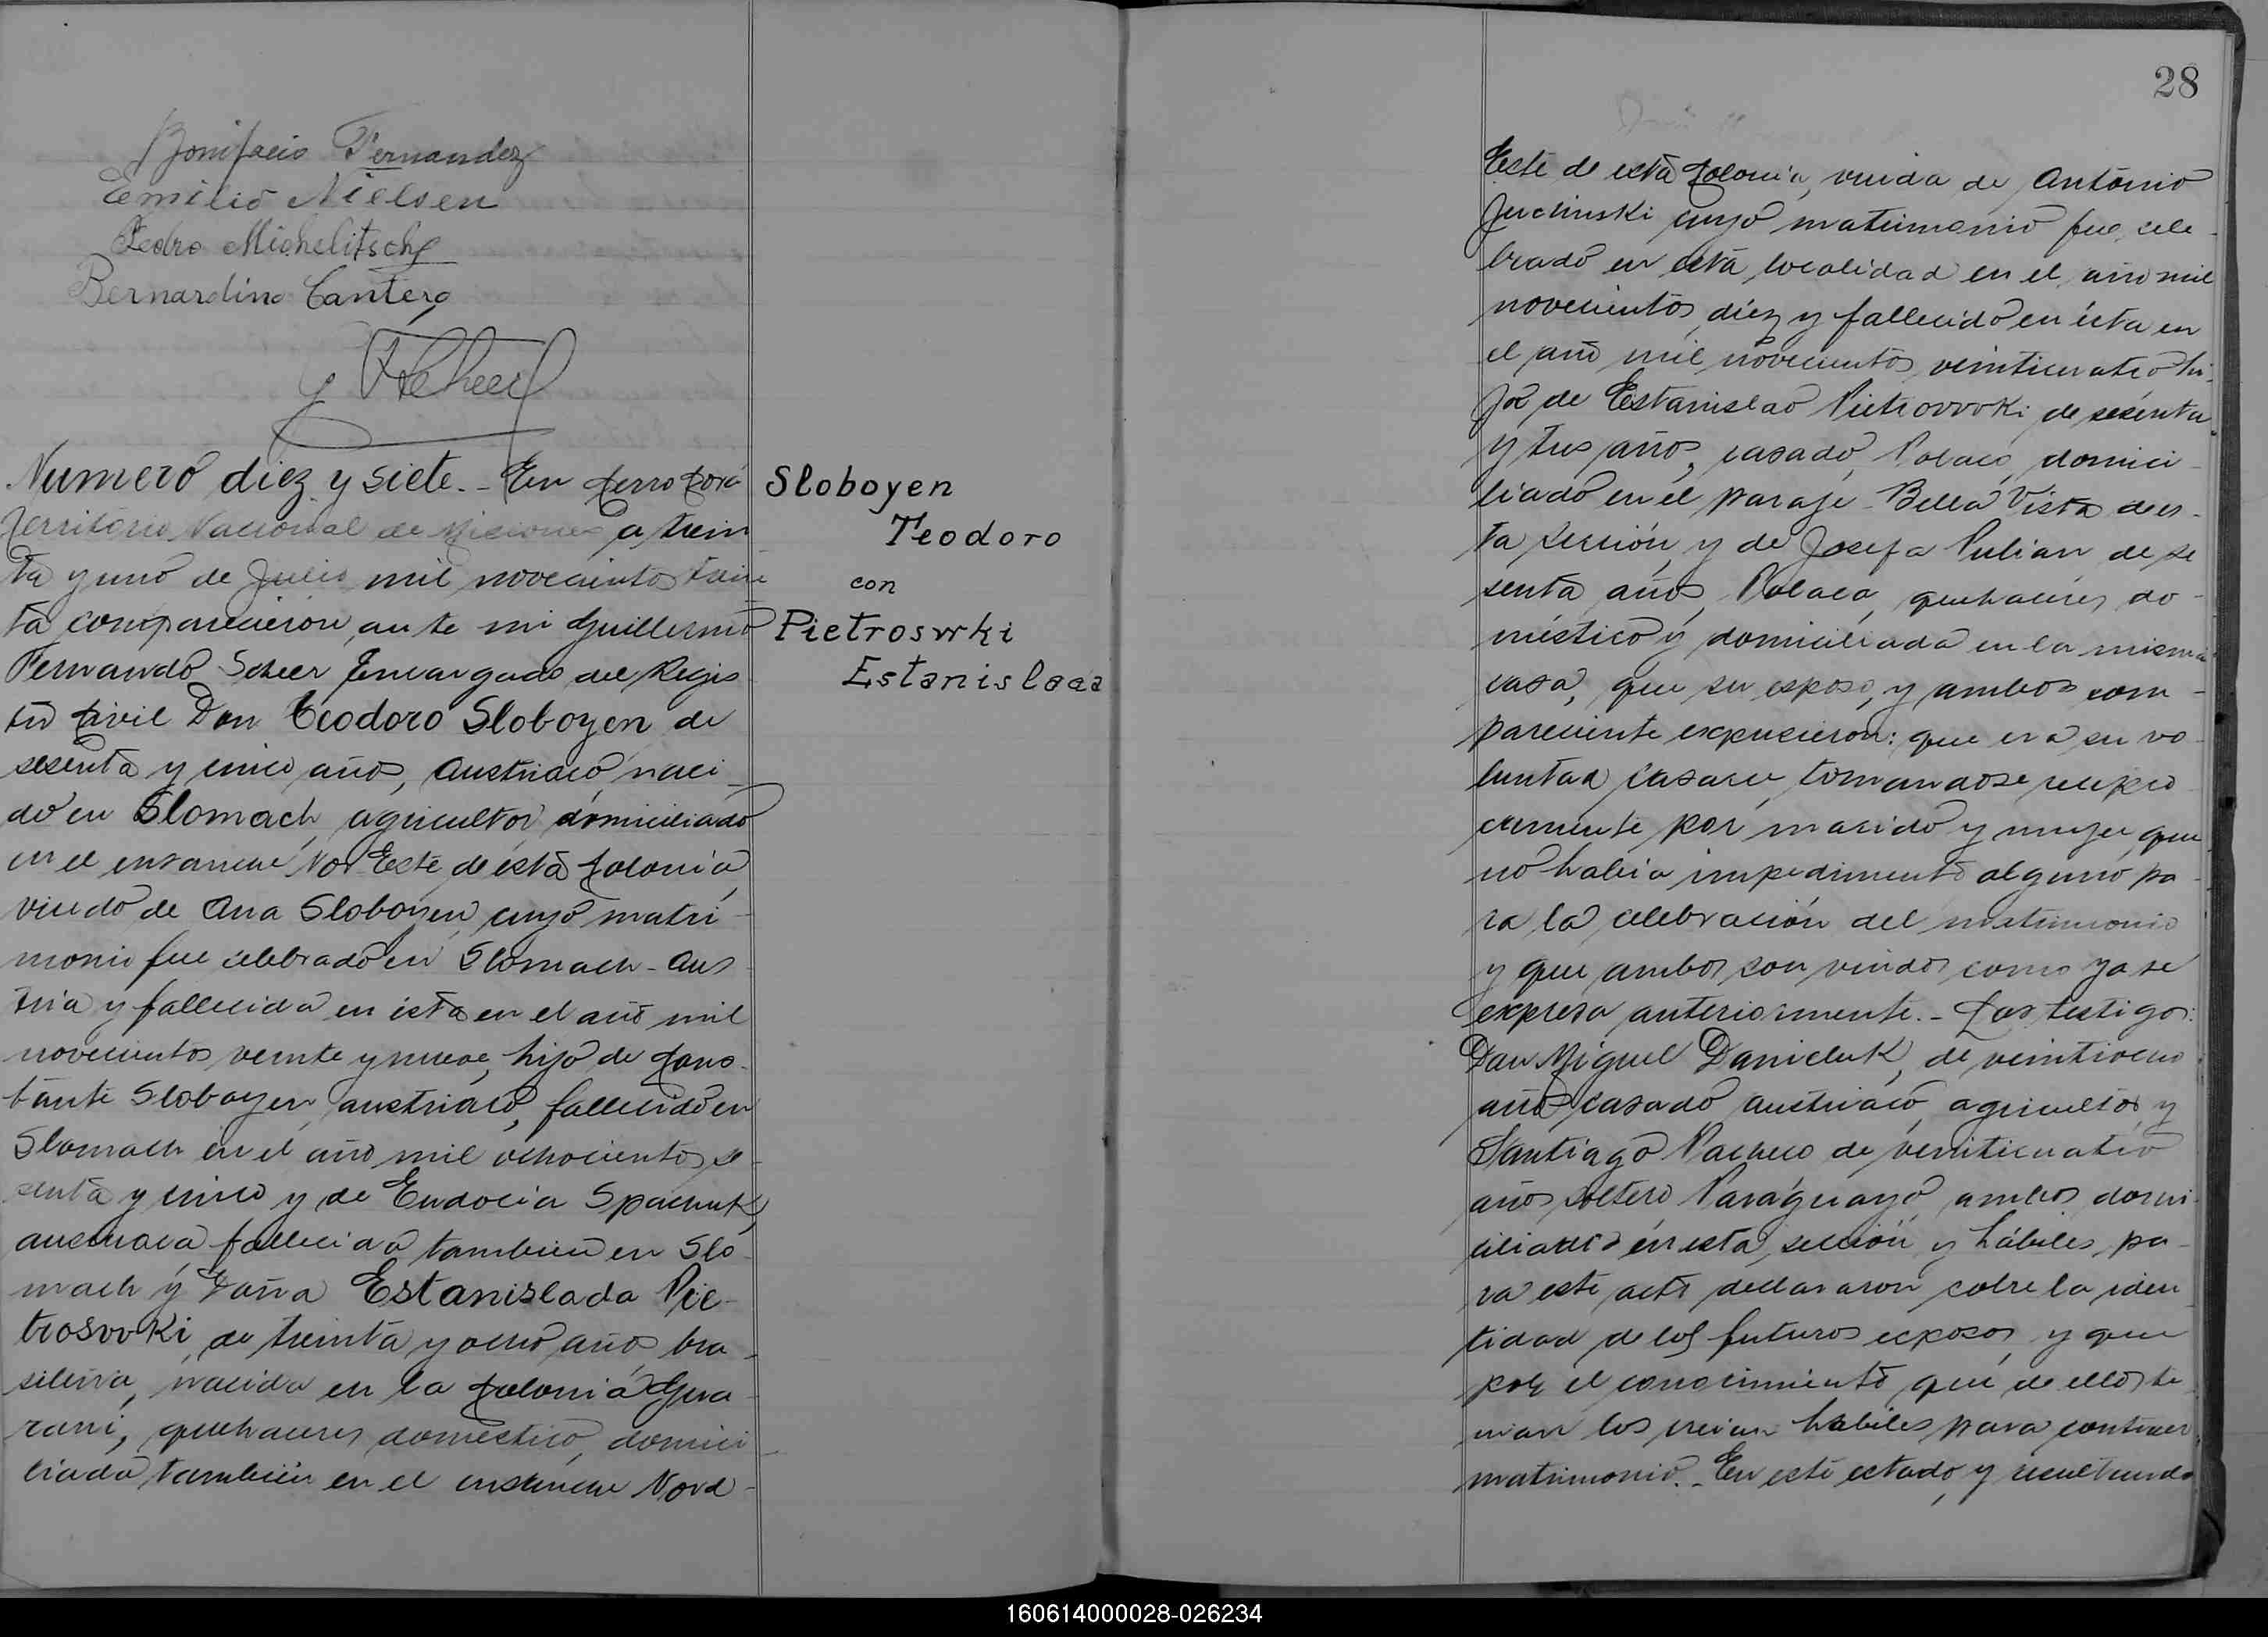 Bonifacio Fernandez
Emilio Nielsen
Pedro Michelitsch
Bernardino Cantero
Numero diez y siete.- En Cerro Corá
Territorio Nacional de Misiones a trein
ta y uno de Julio mil novecientos trein
ta comparecieron ante mi Guillermo
Fernando Scheer Encargado del Regis
tro Civil Don Teodoro Sloboyen de
sesenta y cinco años, Austriaco, naci-
do en Slomach, agricultor domiciliado
en el ensanche Nor Este de esta Colonia,
viudo de Ana Sloboyen, cuyo matri-
monio fue celebrado en Slomach-Aus
tria y fallecida en ésta en el año mil
novecientos veinte y nueve, hijo de Cons-
tante Sloboyen, austriaco, fallecido en
Slomach en el año mil ochocientos se-
senta y cinco y de Eudocia Spachuk,
austriaca fallecida tambien en Slo-
mach y Doña Estanislada Pie-
trosvvki, de treinta y ocho años, bra-
silera, nacida en la Colonia Gua-
rani, quehaceres domestico, domici-
liada, tambien en el ensanche Nord-
Sloboyen
Teodoro
con
Pietrosvrki
Estanislaaa
28
Este de esta Colonia, viuda de Antonio
Juchinski cuyo matrimonio fue cele-
brado en esta localidad en el año mil
novecientos diez y fallecido en ésta en
el año mil novecientos veinticuatro hi-
ja de Estanislao Pietrovvoki de sesenta
y tres años, casado, Polaco, domici-
liado en el paraje Bella Vista de es-
ta sección, y de Josefa Pulian de se
senta años, Polaca, quehaceres do-
mestico y domiciliada en la misma
casa, que su esposo, y ambos com-
pareciente expusieron: que era su vo-
luntad casarse tomandose recipro-
camente por marido y mujer, que
no habia impedimento alguno pa-
ra la celebración del matrimonio
y que ambos son viudos como ya se
expresa anteriormente.- Los testigos:
Don Miguel Danieluk, de veintiocho
años casado austriaco, agricultor y
Santiago Pacheco de veinticuatro
años soltero Paraguayo, ambos domi-
ciliados en esta, sección y hábiles pa-
ra este acto declararon sobre la iden
tidad de los futuros esposos, y que
por el conocimiento que de ellos te
nian los creian habiles para contraer
matrimonio.- En este estado, y resultando
160614000028-026234